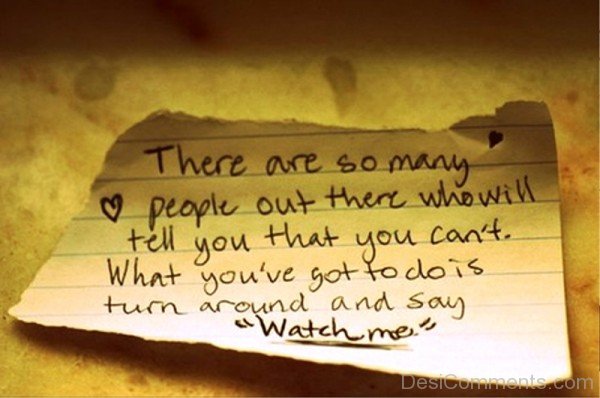 There are so many
♥ people out there who will
tell you that you can't.
What you've got to do is
turn around and say
"Watch me."
DesiComments.com